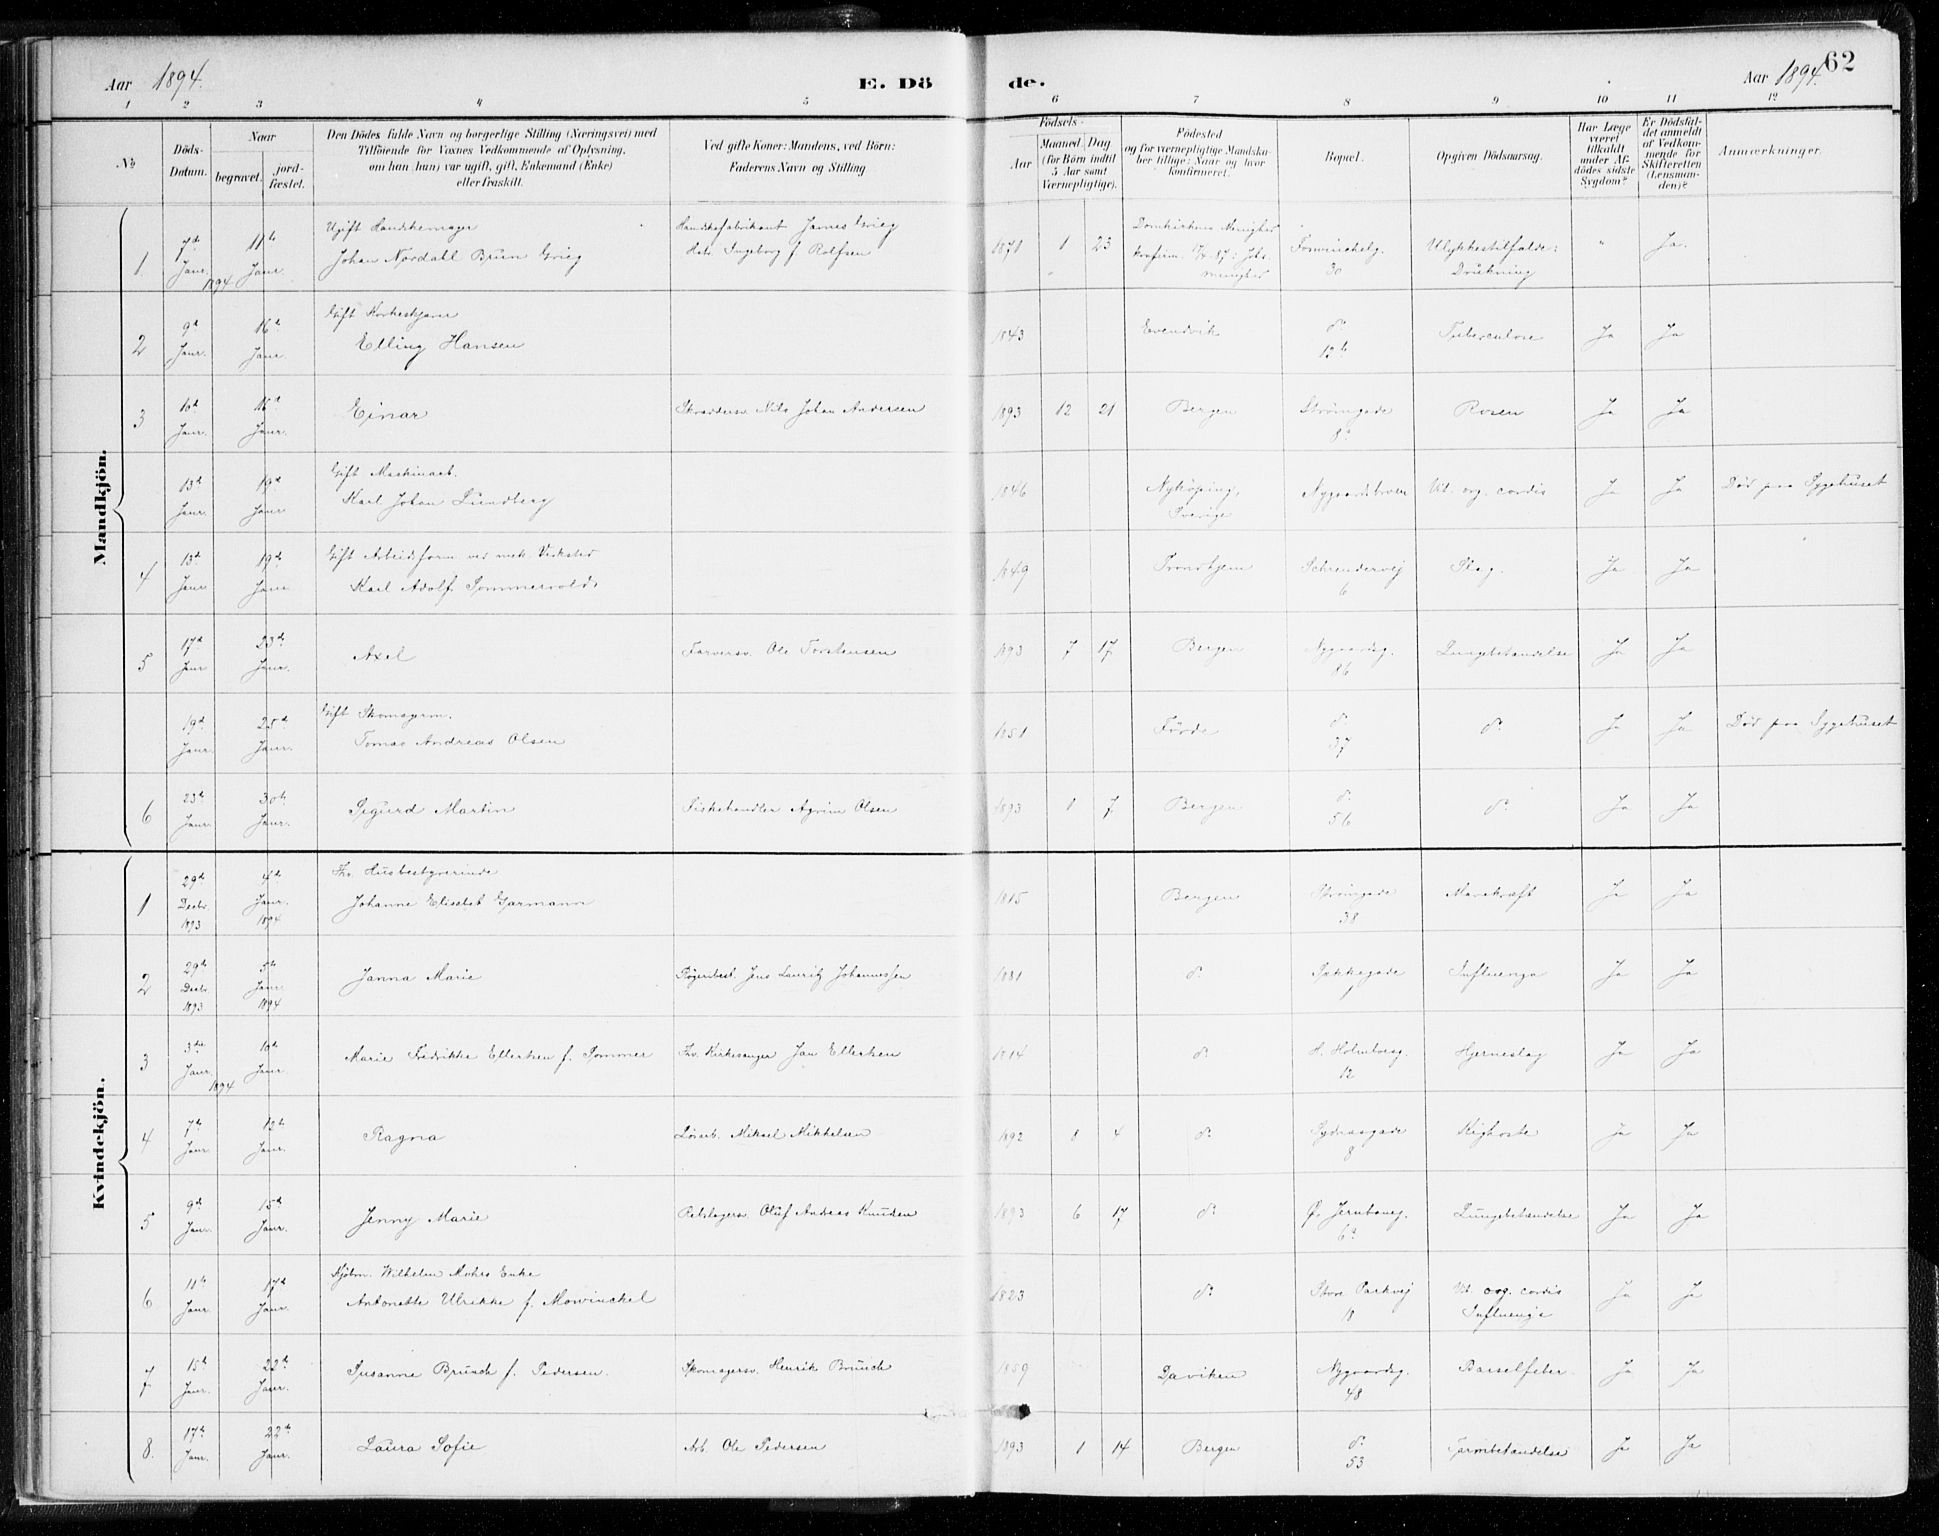 Aar 1894.
E. Dö
de.
Aar 1894.
62
1 2 3 4 5 6 7 8 9 10 11 12
No
Döds-Datum.
Naar
begravet.
jord-fæstet.
Den Dödes fulde Navn og borgerlige Stilling (Næringsvei) med
Tilföiende for Voxnes Vedkommende af Oplysning,
om han (hun) var ugift, gift, Enkemand (Enke)
eller fraskilt.
Ved gifte Koner: Mandens, ved Börn:
Faderens Navn og Stilling
Födsels-
Aar
Maaned. Dag
(for Börn indtil
5 Aar samt
Værnepligtige).
Födested
og for værnepligtige Mandska-
ber tillige: Naar og hvor
konfirmeret.
Bopæl.
Opgiven Dödsaarsag.
Har Læge
været
tilkaldt
under Af-
dödes sidste
Sygdom?
Er Dödsfal-
det anmeldt
af Vedkom-
mende for
Skifteretten
(Lensman-
den)?
Anmærkninger.
Mandkjön.
1. 7de Janr. 1894 11te Janr. Ugift Handskemager
Johan Nordahl Brun Grieg
Handskefabrikant James Grieg
Hstr. Ingeborg f. Rolfsen
1871 1 23 Domkirkens Menighet
konfirm. 87: Joh.
menighet
30
Ulykkestilfælde:
Drukning
" Ja.
2 9de Janr. 16de Janr. Gift
Elling Hansen
1843 Evendvik do Tuberculose Ja Ja
3 10de Janr. 16de Janr. Einar
Skræddersv. Nils Johan Andersen
1893 12 21 Bergen Strömgade
8a
Rosen Ja Ja
13de Janr. 19de Janr. Gift Maskinarb.
Karl Johan Lundberg
1846 Nyköping,
Sverige
Nygaardsbroen Vit. org. cordis Ja Ja Död paa Sygehuset
4 13de Janr. 19de Janr. Gift Arbeidsform. ved mek. Verksted
Karl Adolf Sommervold
1849 Trondhjem
6
Slag. Ja Ja
5 17de Janr 23de Janr. Axel
Farversv. Ole Torstensen
1893 7 17 Bergen Nygaardsg.
86
Lungebetændelse Ja Ja
19de Janr. 25de Janr. Gift Skomagerm.
Tomas Andreas Olsen
1851 Förde do
37
do Ja Ja Död paa Sygehuset
6 23de Janr. 30te Janr. Sigurd Martin
Fiskehandler Olsen
1893 1 7 Bergen do
56
do Ja Ja
Kvindekjön.
1 29de Decbr. 1893 4de Janr. 1894 Fhv. Husbestyrerinde
Johanne Elisabet Garmann
1815 Bergen Strömgade
38
Marekraft Ja Ja
2 29de Decbr. 1893 5te Janr 1894 Janna Marie
Jens Lauritz Johannessen
1881 do Influenza Ja Ja
3 3die Janr. 1894 10de Janr Marie Fredrikke Ellertsen f. Sommer
Fhv. Kirkesanger Jan Ellertsen
1814 do H. Holmboesg.
12
Hjerneslag Ja Ja
4 7de Janr 12te Janr. Ragna
Mikael Mikkelsen
1892 8 4 do Sydnesgade
8
Kighoste Ja Ja
5 9de Janr. 15de Janr. Jenny Marie
Rebslagersv. Oluf Andreas Knudsen
1893 6 17 do Ø. Jernbaneg.
6a
Lungebetændelse Ja Ja
6 11te Janr. 17de Janr. Kjöbm. Wilhelm Mohrs Enke
Antonette Ulrikke f. Mowinckel
1823 do Store Parkvej
18
Vit. org. cordis
Influenza
Ja Ja
7 15de Janr. 22de Janr. Susanne Brunch f. Pedersen.
Skomagersv. Henrik Brunch
1859 Daviken Nygaardsg.
48
Barselfeber Ja Ja
8. 17de Janr. 22de Janr. Laura Sofie
Arb. Ole Pedersen
1893 1 14 Bergen do
53
Tarmbetændelse Ja Ja